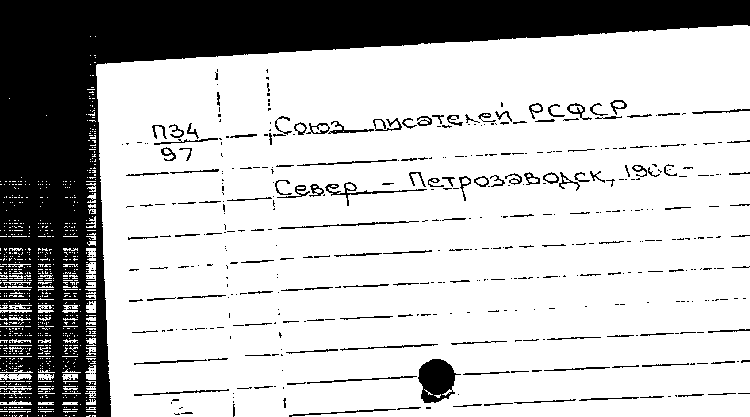 П34
97
Союз писателей РСФСР
Север - Петрозаводск, 1966-